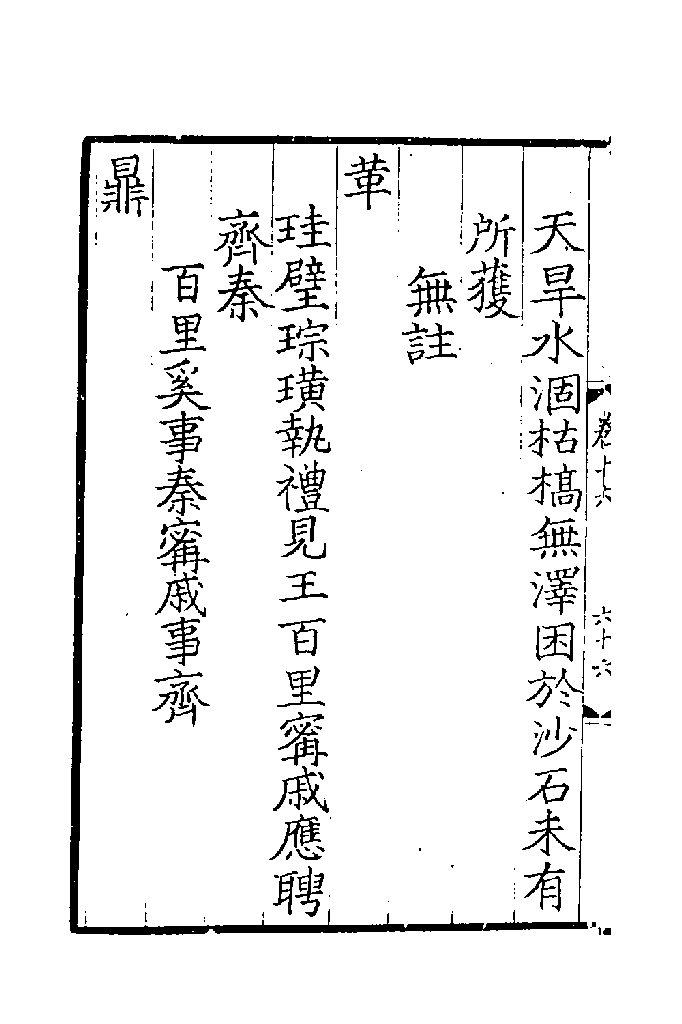 卷十六
六十六
天旱水涸枯槁無澤困於沙石未有
所獲
無註
革
珪璧琮璜執禮見王百里甯戚應聘
齊秦
百里奚事秦甯戚事齊
鼎